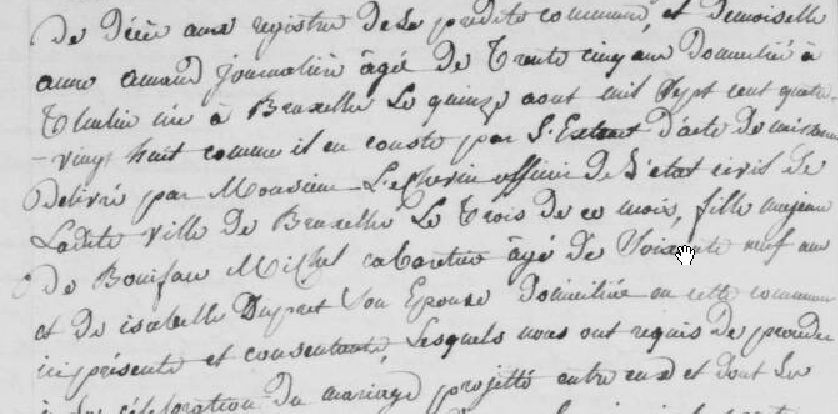 De Décès aux registres de la predite commune, et demoiselle
anne amand journalière âgé de Trente cinq ans Domicilié à
Thulin née à Bruxelle Le quinze aout mil Sept cent quatre
-vingt huit comme il en conste par L'Extrait D'acte de naissance
Delivré par Monsieur officier De L'etat civil De
Ladite ville De Bruxelle Le Trois De ce mois, fille majeure
De Boniface Michel cabaretier âgé De Soixante neuf ans
et De isabelle Dupret Son Epouse Domiciliée en cette commune
ici présente et consentante, Lesquels nous ont requis De proceder
à La célébration Du mariage projetté entre eux et dont Les